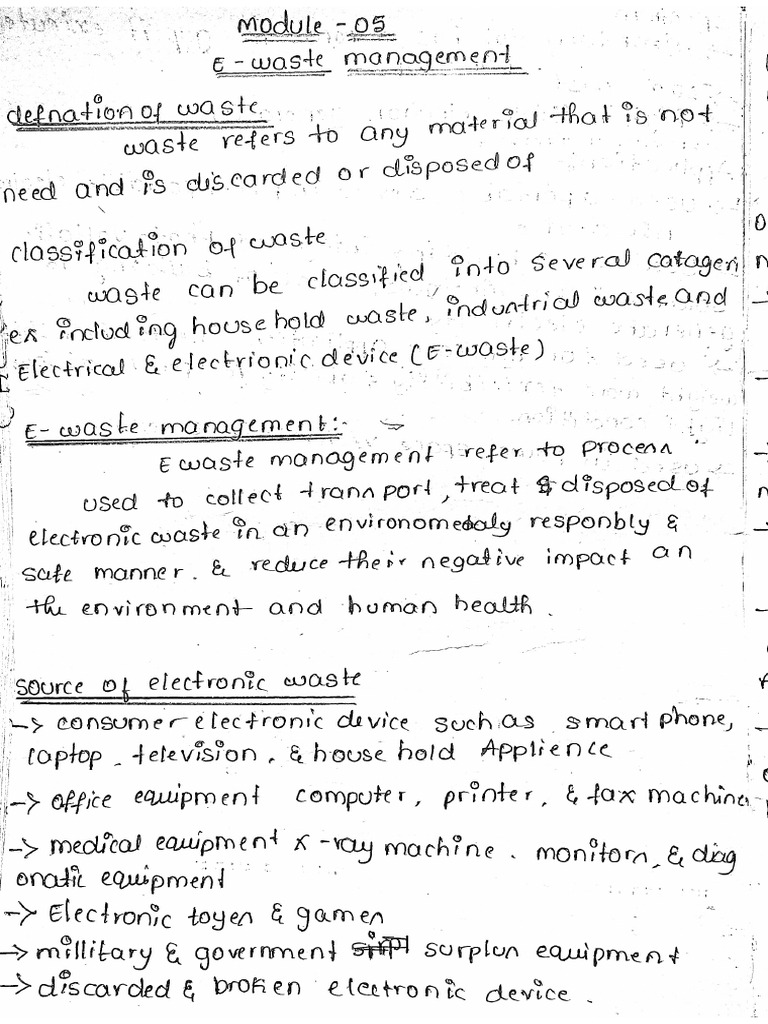 Module - 05
E - waste management
defnation of waste
waste refers to any material that is not
need and is discarded or disposed of
classification of waste
waste can be classified into several catageri
es including household waste, industrial waste and
Electrical & electrionic device (E-waste)
E- waste management:-
E waste management refer to process
used to collect transport, treat & disposed of
electronic waste in an environomedaly responbly &
safe manner. & reduce their negative impact an
the environment and human health.
source of electronic waste
-> consumer electronic device such as smart phone,
laptop, television, & house hold Applience
-> office equipment computer, printer, & fax machine
-> medical equipment x-ray machine. monitors, & diag
onatic equipment
-> Electronic toyes & games
-> millitary & government surplus equipment
-> discarded & broken electronic device.